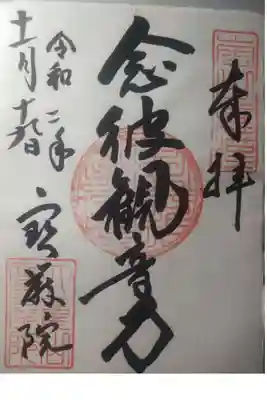 奉拝
念彼観音力
令和二年
十一月十九日
宝厳院